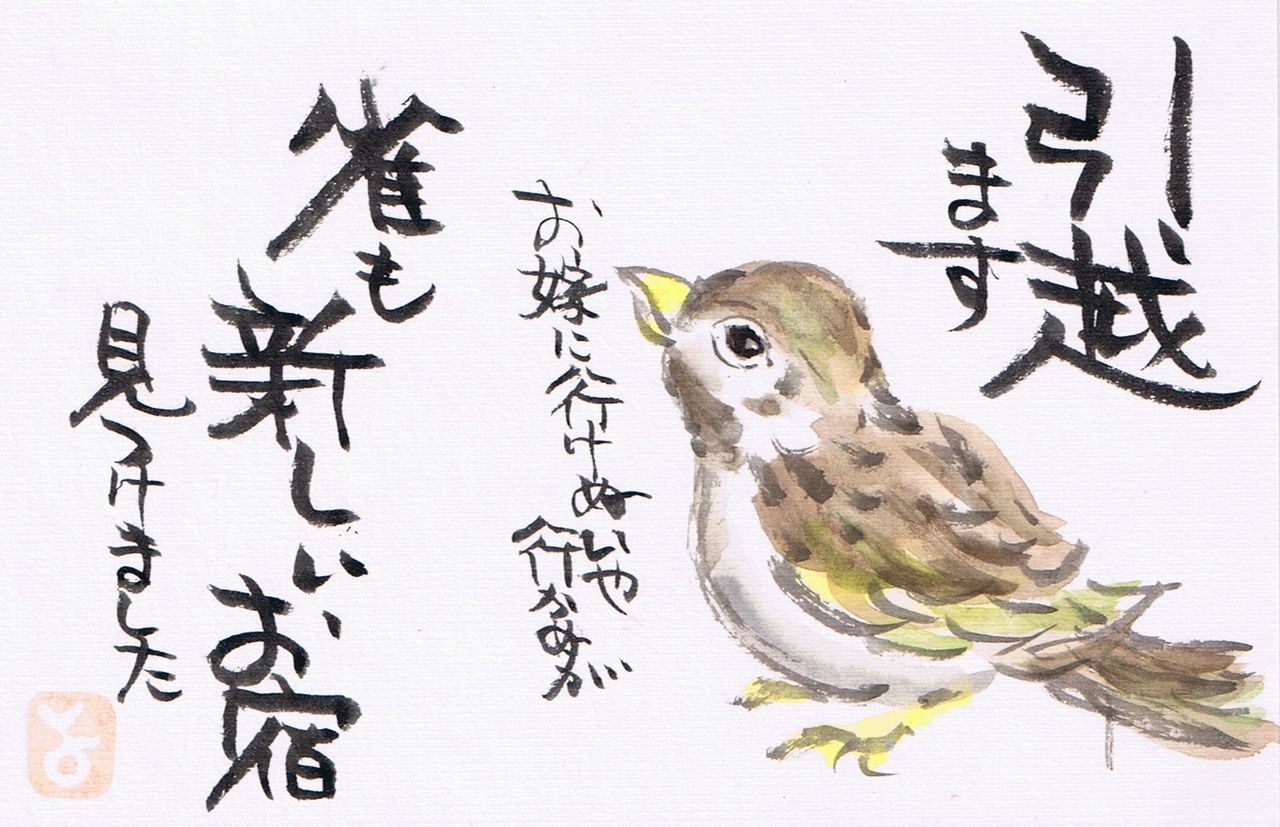 引越
ます
お嫁に行けぬいや
行かぬが
雀も
新しいお宿
見つけました